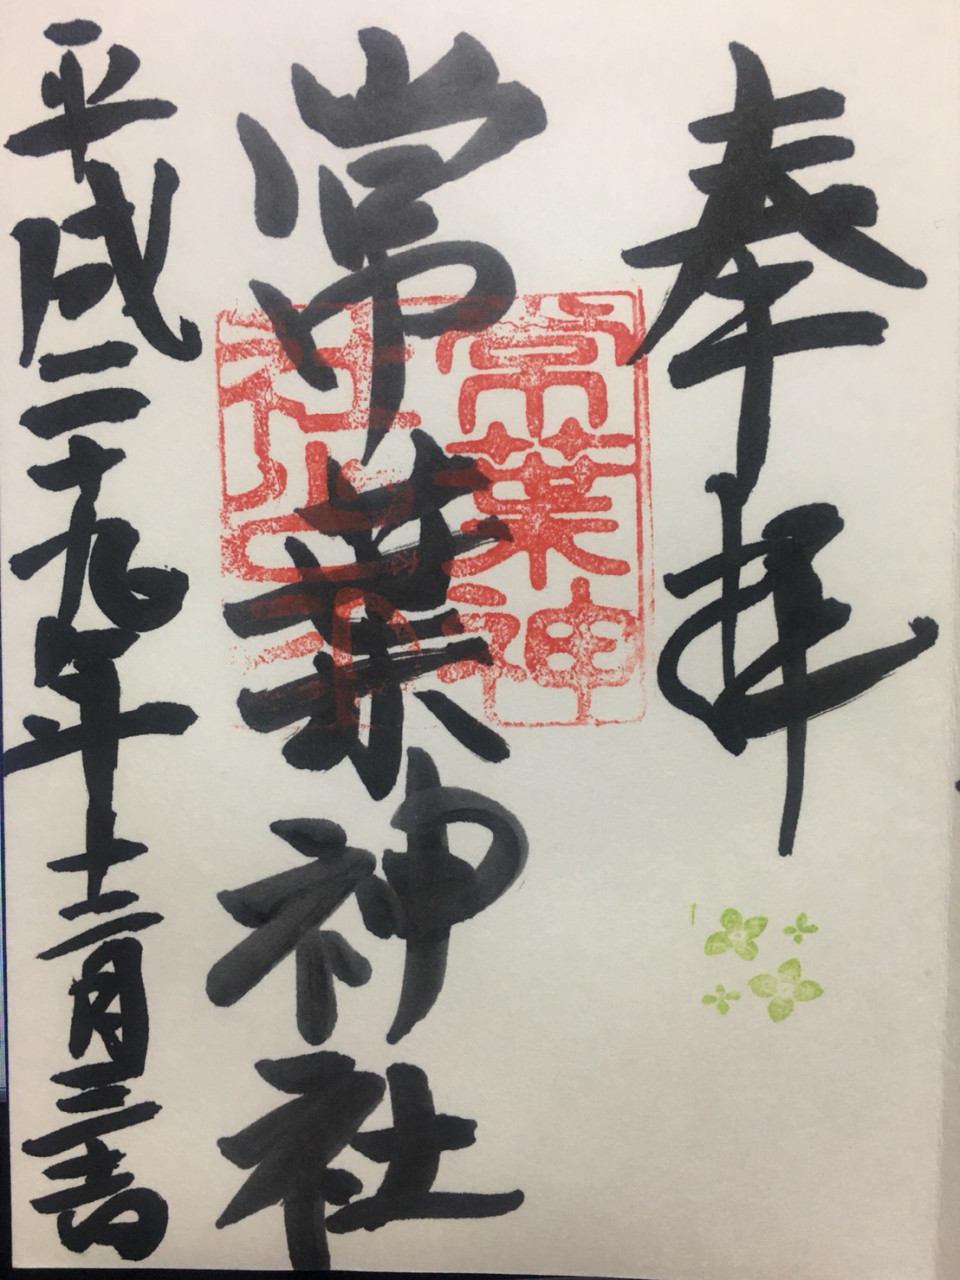 奉拝
常葉神社
常葉神
社之印
平成二十九年十二月三十一日